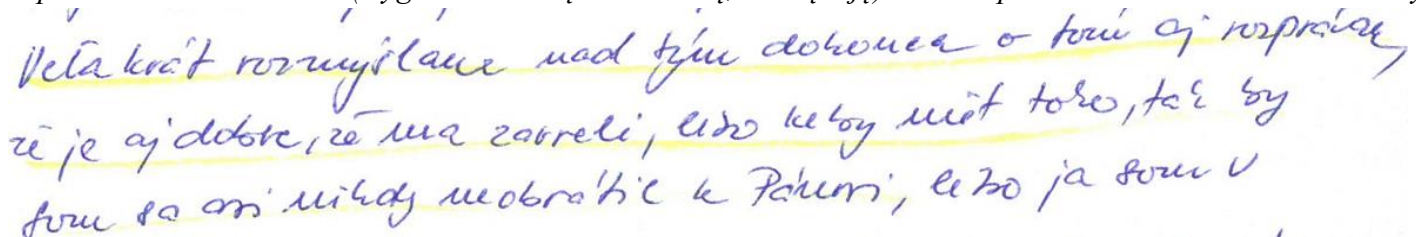 Veľa krát rozmýšľame nad tým dokonca o tom aj rozprávam,
že je aj dobre, že ma zavreli, lebo keby ništ toho, tak by
som sa asi nikdy neobrátil k Pánovi, lebo ja som v